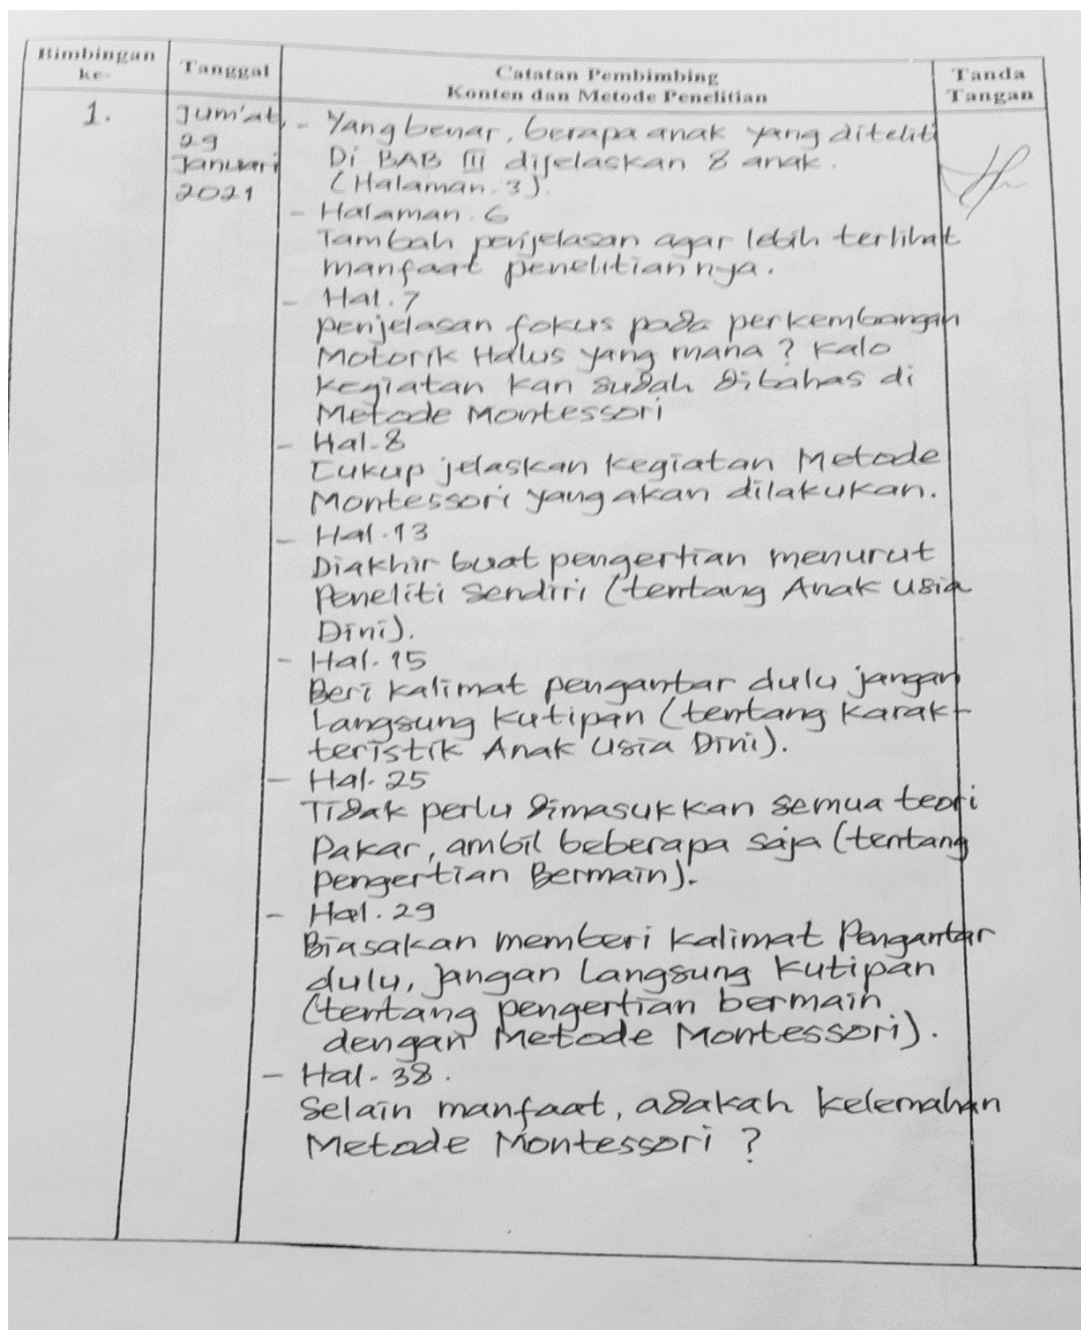 Bimbingan ke-
Tanggal
Catatan Pembimbing
Konten dan Metode Penelitian
Tanda Tangan
1.
Jum'at,
29
Januari
2021
- Yang benar, berapa anak yang diteliti
Di BAB III dijelaskan 8 anak.
(Halaman. 3).
- Halaman. 6
Tambah penjelasan agar lebih terlihat
manfaat penelitiannya.
- Hal. 7
penjelasan fokus pada perkembangan
Motorik Halus yang mana? Kalo
kegiatan kan sudah dibahas di
Metode Montessori
- Hal. 8
Cukup jelaskan kegiatan Metode
Montessori yang akan dilakukan.
- Hal. 13
Diakhir buat pengertian menurut
Peneliti Sendiri (tentang Anak Usia
Dini).
- Hal. 15
Beri kalimat pengantar dulu jangan
Langsung kutipan (tentang Karak-
teristik Anak Usia Dini).
- Hal. 25
Tidak perlu dimasukkan semua teori
Pakar, ambil beberapa saja (tentang
pengertian Bermain).
- Hal. 29
Biasakan memberi kalimat Pengantar
dulu, jangan Langsung kutipan
(tentang pengertian bermain
dengan Metode Montessori).
- Hal. 38.
Selain manfaat, adakah kelemahan
Metode Montessori?